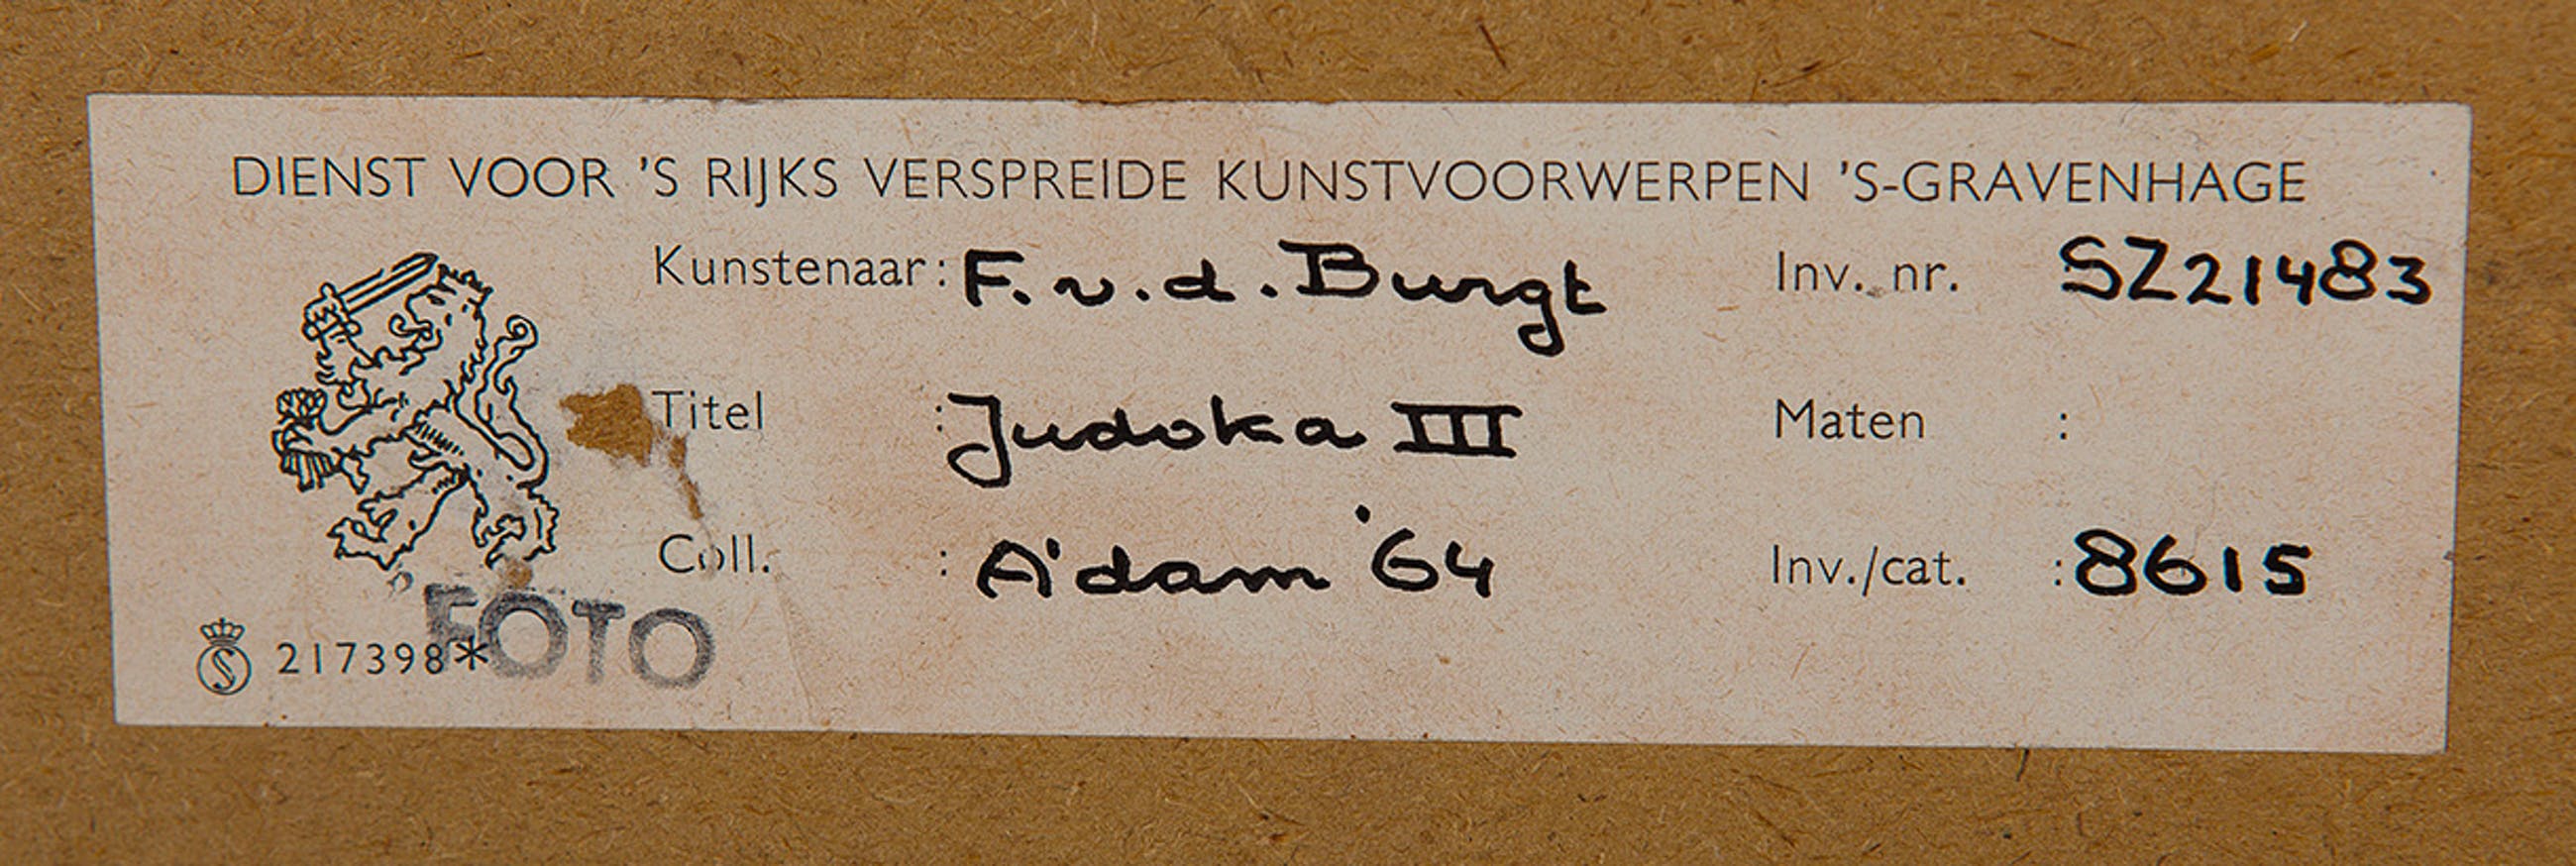 DIENST VOOR 'S RIJKS VERSPREIDE KUNSTVOORWERPEN 'S-GRAVENHAGE
Kunstenaar: F. v. d. Burgt Inv. nr. SZ21483
Titel : Judoka III Maten :
Coll. : A'dam '64 Inv./cat. : 8615
FOTO
S 217398*